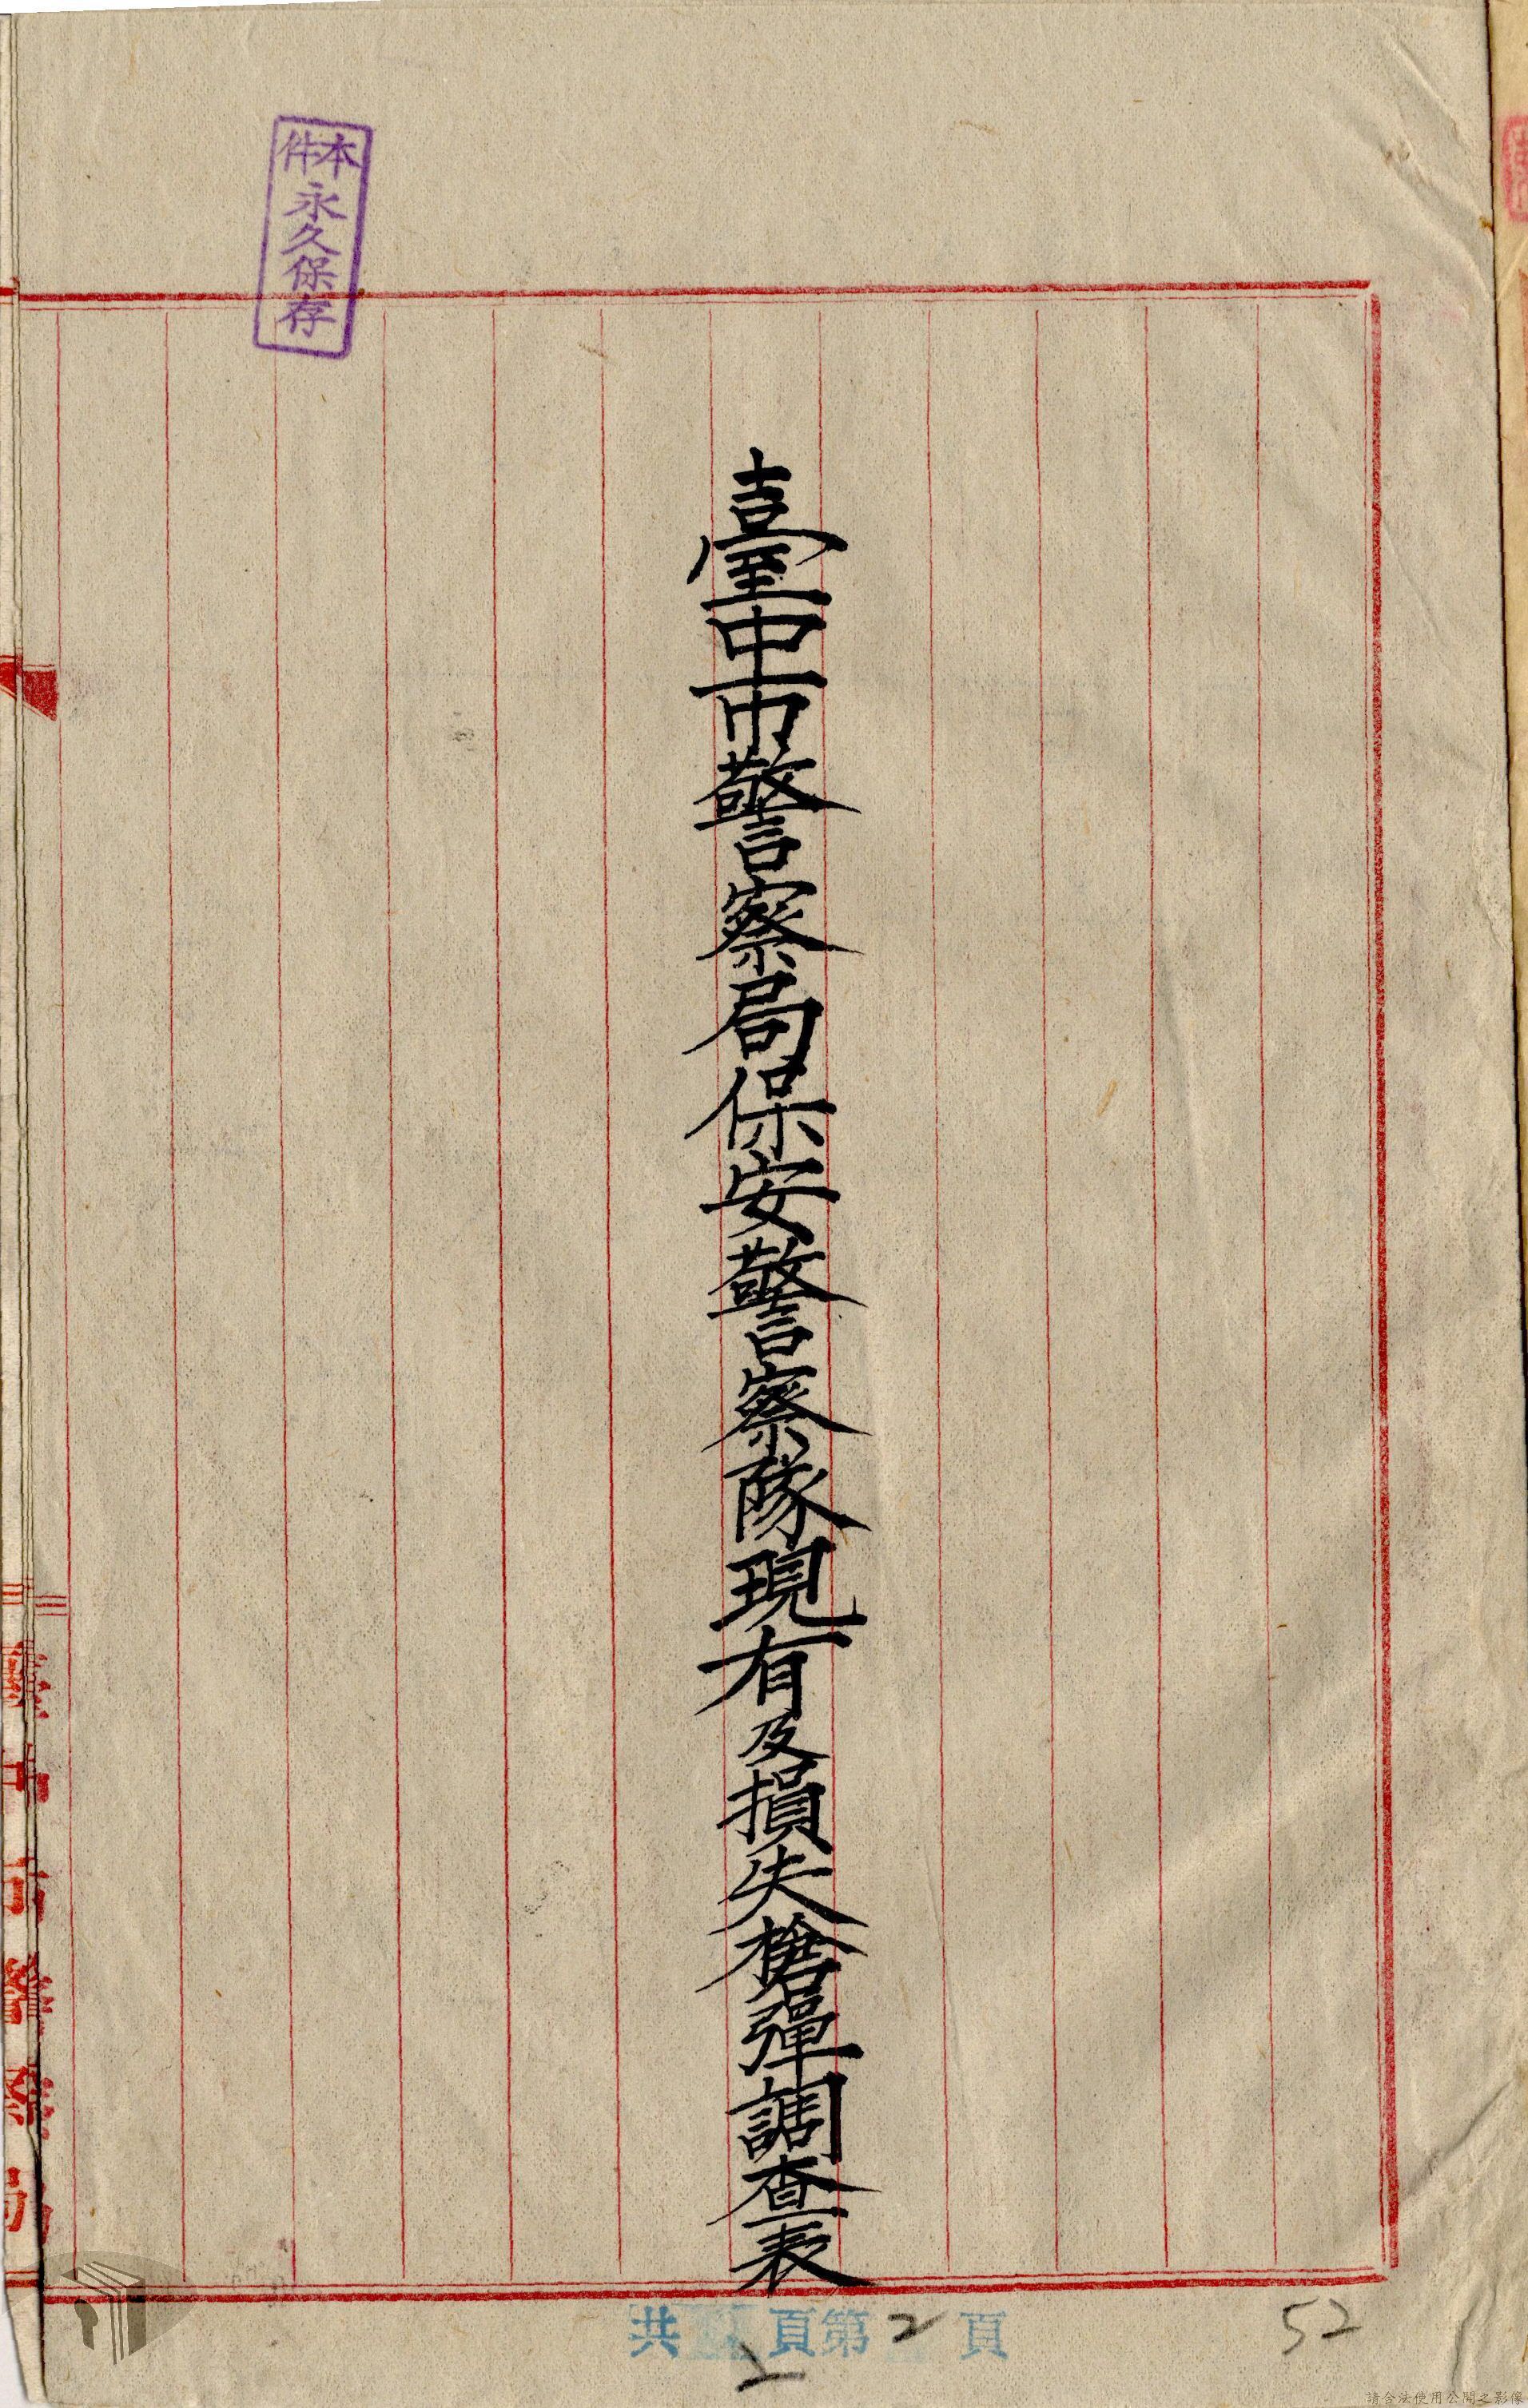 本件永久保存
臺中市警察局保安警察隊現有及損失槍彈調查表
臺中市警察局
共 頁第2頁
2
52
請合法使用公開之影像